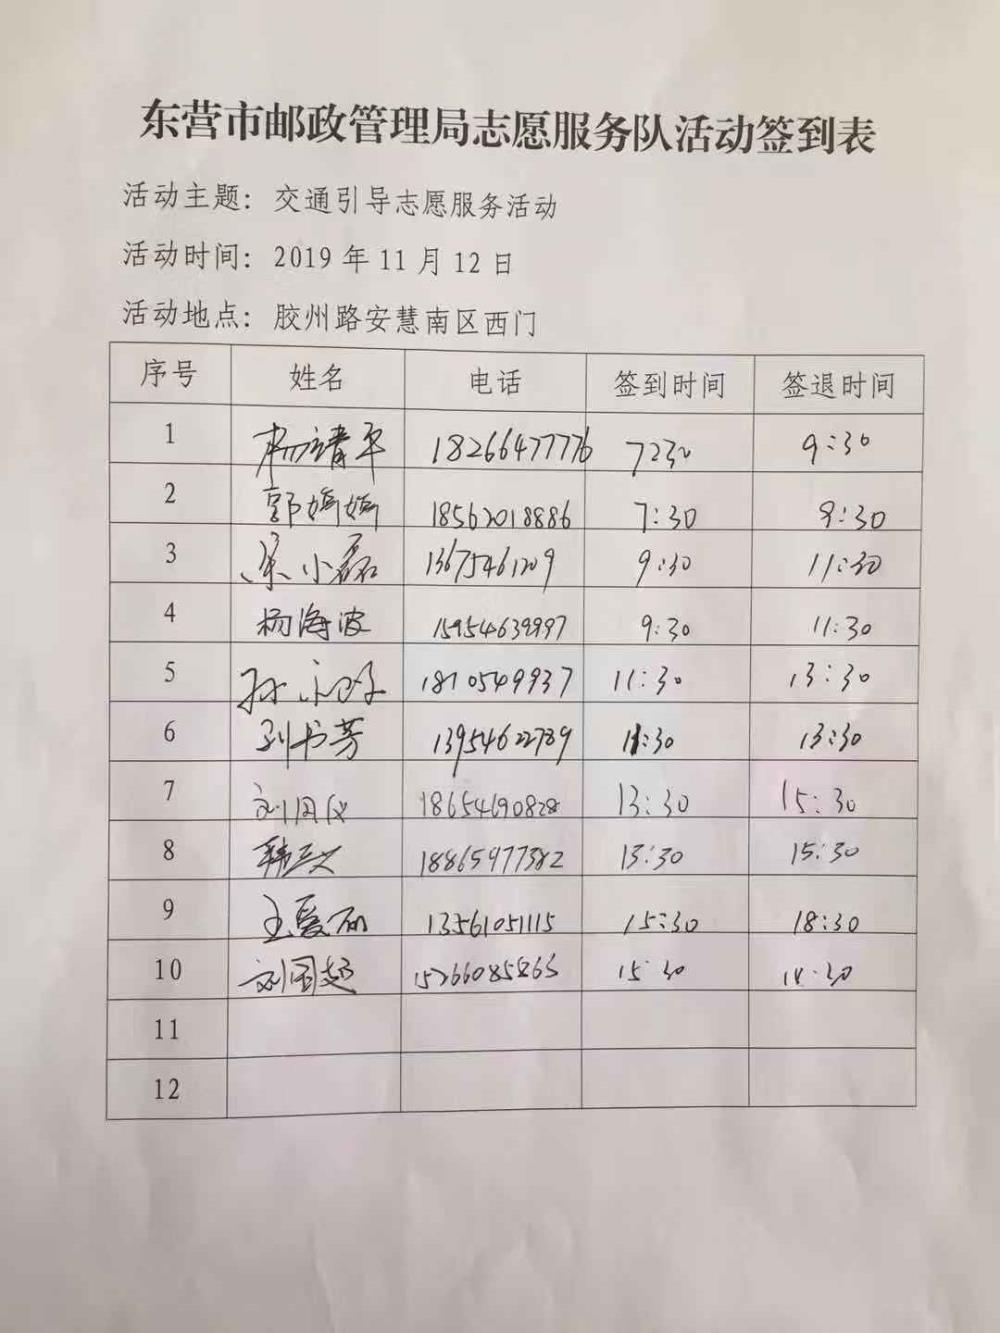 东营市邮政管理局志愿服务队活动签到表
活动主题：交通引导志愿服务活动
活动时间：2019 年 11 月 12 日
活动地点：胶州路安慧南区西门
序号 姓名 电话 签到时间 签退时间
1 杨靖平 18266477776 7230 9:30
2 郭娇娇 18562018886 7:30 9:30
3 小磊 13675461209 9:30 11:30
4 杨海波 15954639997 9:30 11:30
5 孙 18105499937 11:30 13:30
6 刘书芳 13954622789 11:30 13:30
7 刘风仪 18654690828 13:30 15:30
8 韩 18865977382 13:30 15:30
9 王爱丽 13561051115 15:30 18:30
10 刘国超 15266085865 15:30 18:30
11
12